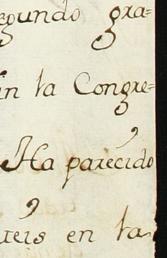 egundo gra=
in la Congre=
Ha parecido
ueis en la